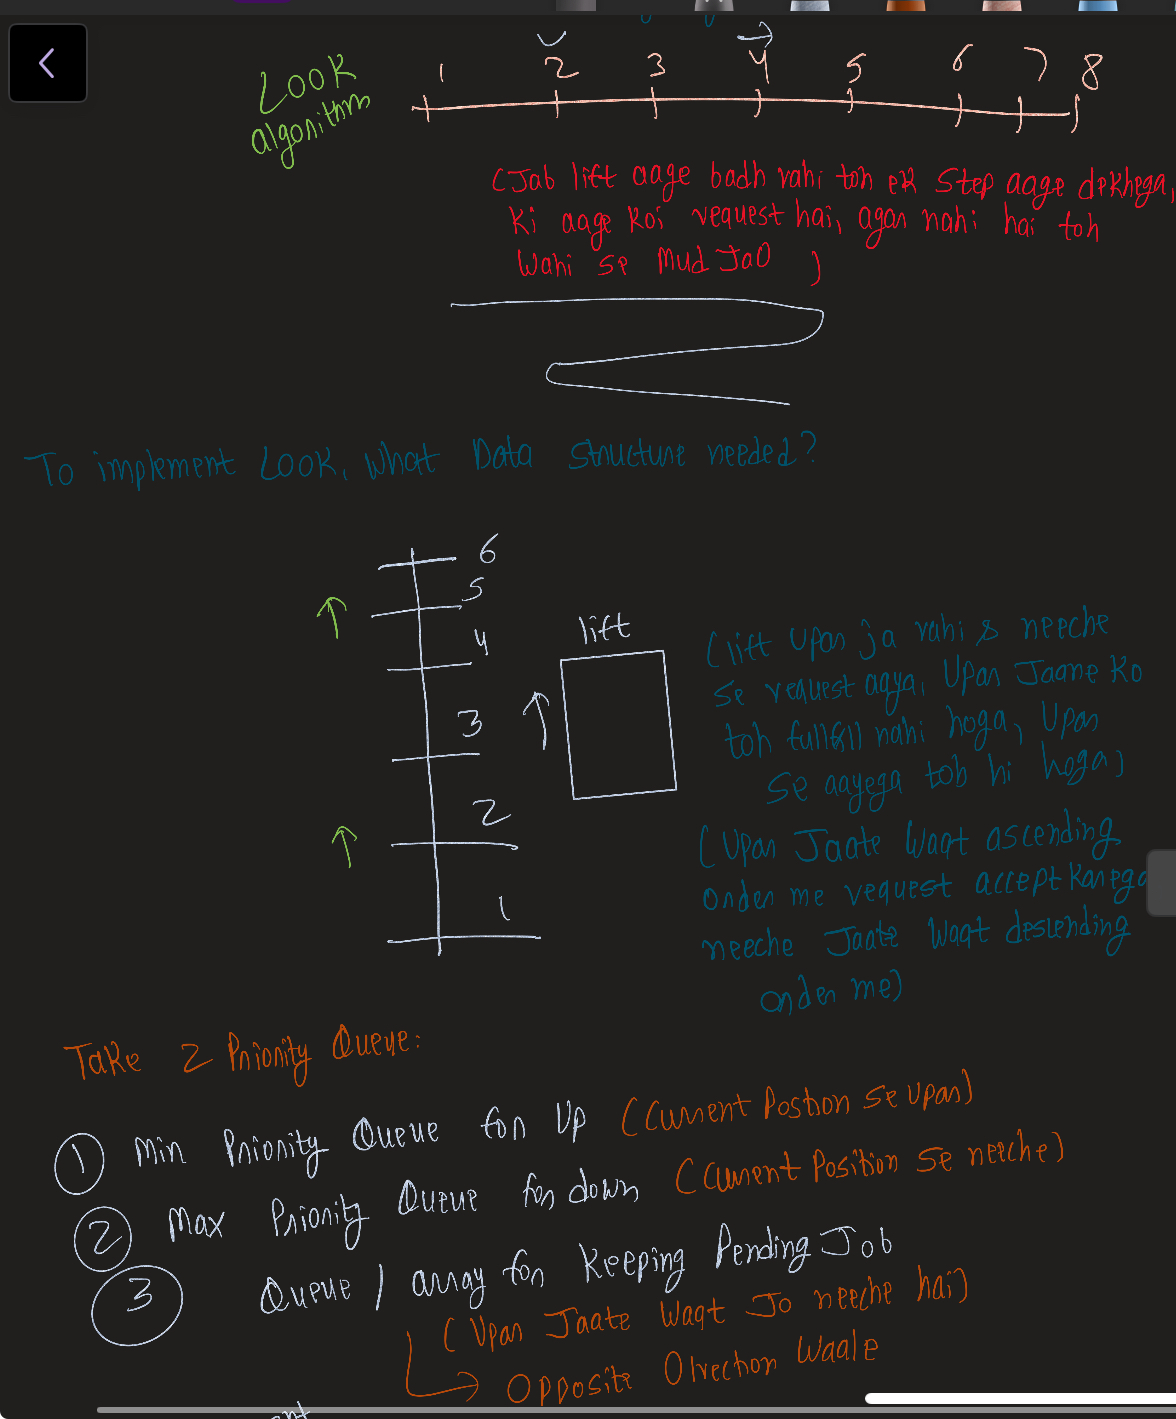 1 2 3 4 5 6 7 8
LOOK
algorithm
(Jab lift aage badh rahi toh ek step aage dekhega,
ki aage koi request hai, agar nahi hai toh
wahi se mud jao )
To implement LOOK, what Data Structure needed?
6
5
4
3
2
1
lift
(lift upar ja rahi & neeche
se request aaya, upar jaane ko
toh fullfill nahi hoga, upar
se aayega toh hi hoga)
(Upar jaate waqt ascending
order me request accept karega
neeche jaate waqt descending
order me)
Take 2 Priority Queue:
1 Min Priority Queue for Up (Current Postion se upar)
2 Max Priority Queue for down (Current Position se neeche)
3 Queue / array for keeping Pending Job
(Upar jaate waqt jo neeche hai)
→ Opposite Direction waale